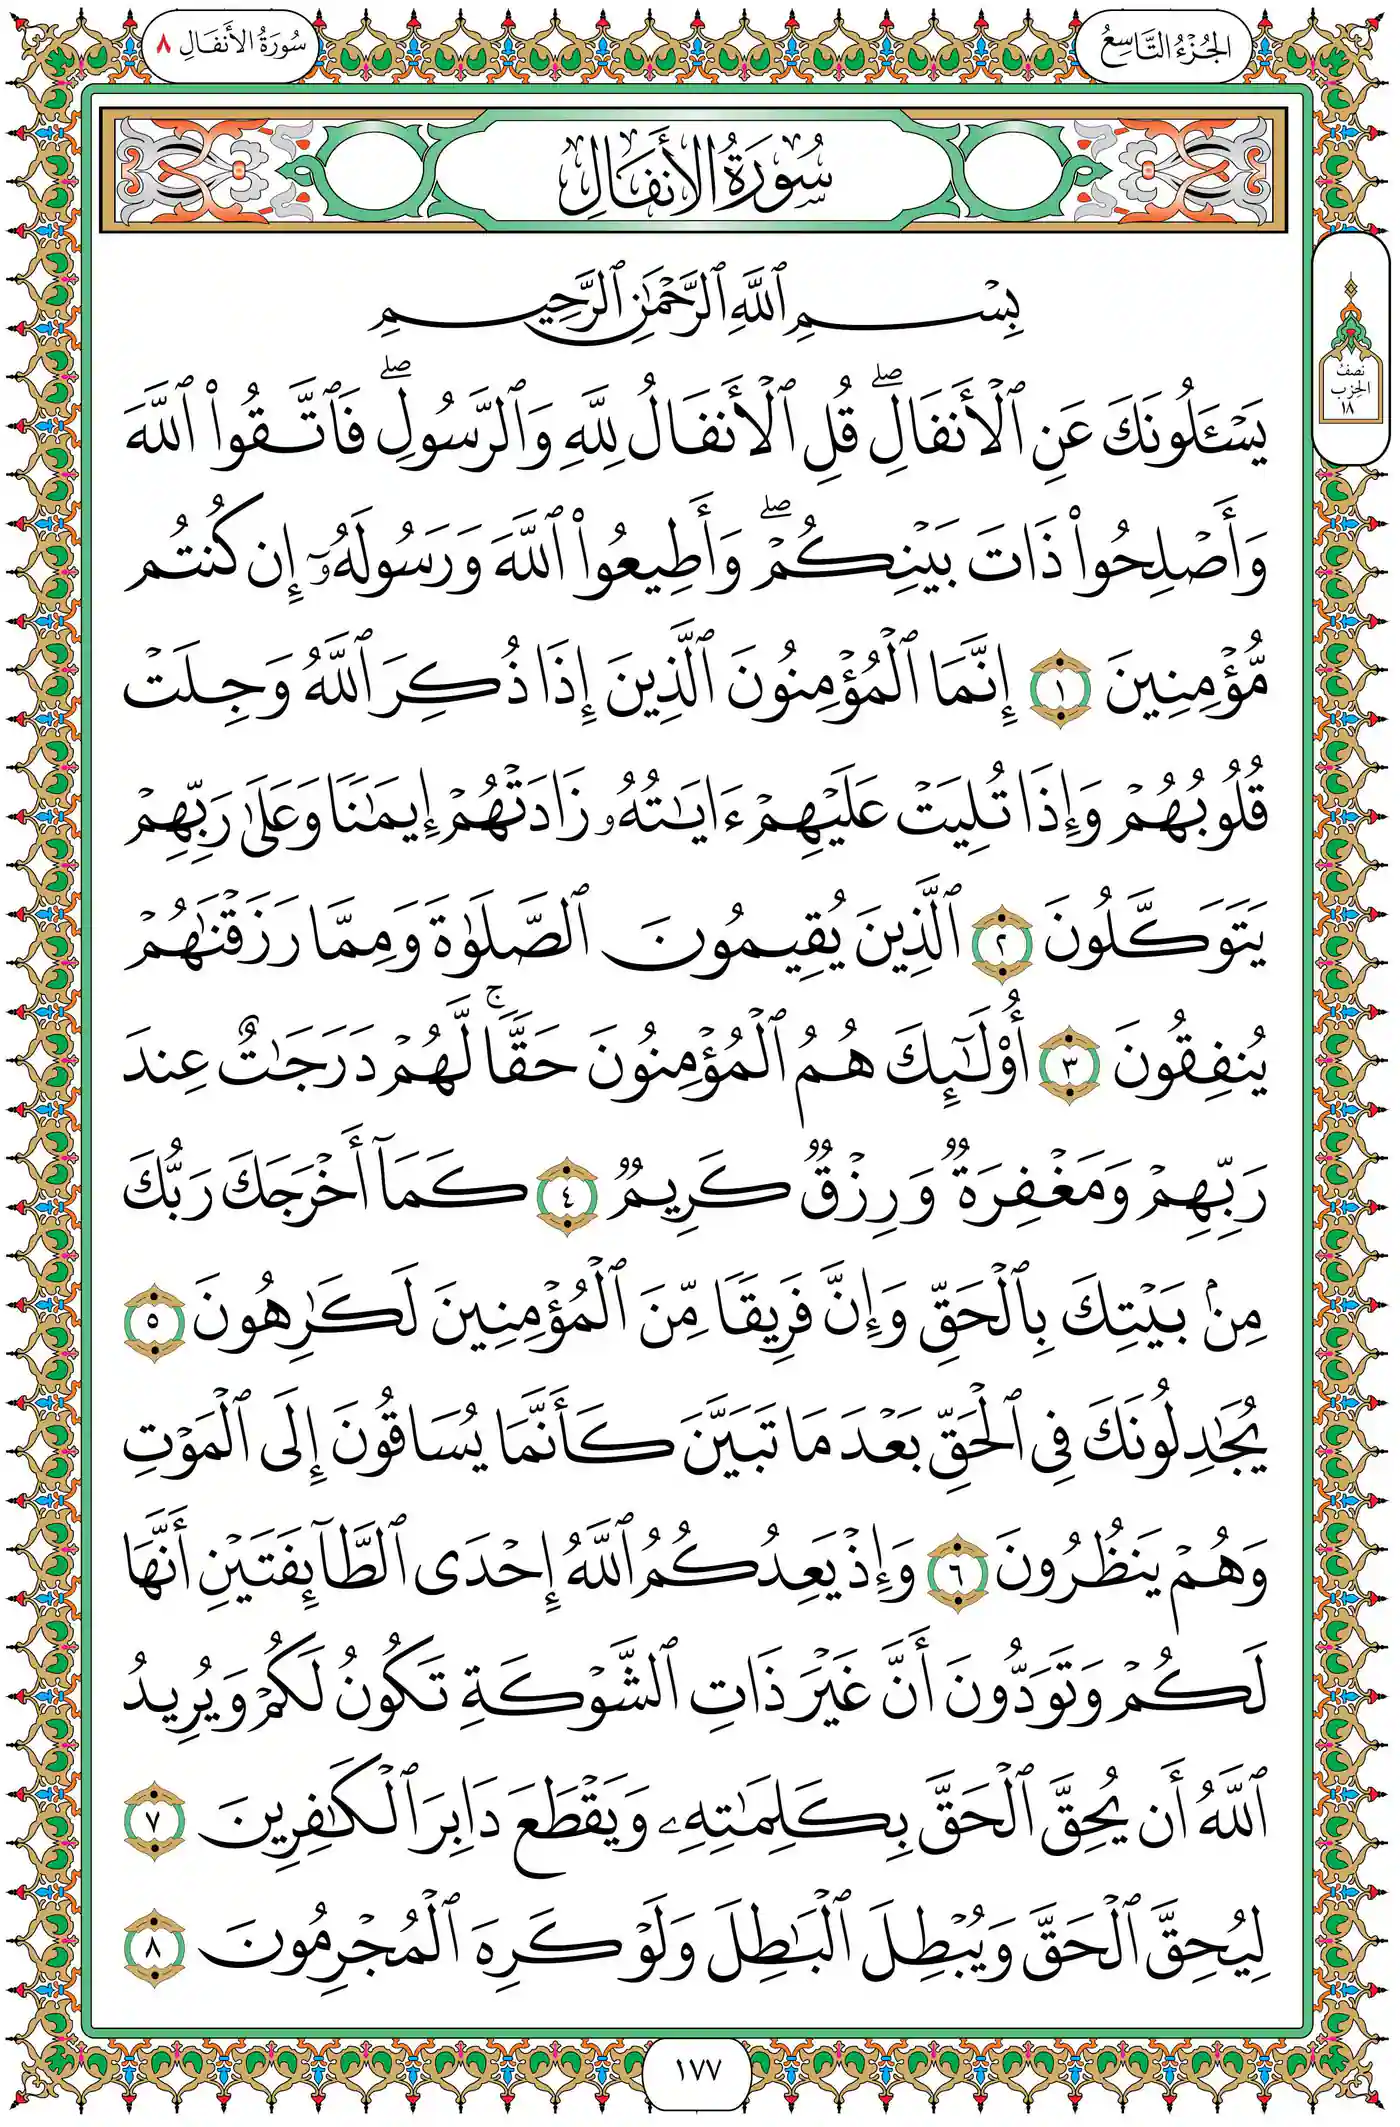 الجُزْءُ التَّاسِعُ
سُورَةُ الأَنفَالِ ٨
سُورَةُ الأَنفَالِ
نصف
الحزب
١٨
بِسْمِ ٱللَّهِ ٱلرَّحْمَٰنِ ٱلرَّحِيمِ
يَسْـَٔلُونَكَ عَنِ ٱلْأَنفَالِۖ قُلِ ٱلْأَنفَالُ لِلَّهِ وَٱلرَّسُولِۖ فَٱتَّقُوا۟ ٱللَّهَ
وَأَصْلِحُوا۟ ذَاتَ بَيْنِكُمْۖ وَأَطِيعُوا۟ ٱللَّهَ وَرَسُولَهُۥٓ إِن كُنتُم
مُّؤْمِنِينَ ١ إِنَّمَا ٱلْمُؤْمِنُونَ ٱلَّذِينَ إِذَا ذُكِرَ ٱللَّهُ وَجِلَتْ
قُلُوبُهُمْ وَإِذَا تُلِيَتْ عَلَيْهِمْ ءَايَٰتُهُۥ زَادَتْهُمْ إِيمَٰنًا وَعَلَىٰ رَبِّهِمْ
يَتَوَكَّلُونَ ٢ ٱلَّذِينَ يُقِيمُونَ ٱلصَّلَوٰةَ وَمِمَّا رَزَقْنَٰهُمْ
يُنفِقُونَ ٣ أُو۟لَٰٓئِكَ هُمُ ٱلْمُؤْمِنُونَ حَقًّاۚ لَّهُمْ دَرَجَٰتٌ عِندَ
رَبِّهِمْ وَمَغْفِرَةٌ وَرِزْقٌ كَرِيمٌ ٤ كَمَآ أَخْرَجَكَ رَبُّكَ
مِنۢ بَيْتِكَ بِٱلْحَقِّ وَإِنَّ فَرِيقًا مِّنَ ٱلْمُؤْمِنِينَ لَكَٰرِهُونَ ٥
يُجَٰدِلُونَكَ فِى ٱلْحَقِّ بَعْدَ مَا تَبَيَّنَ كَأَنَّمَا يُسَاقُونَ إِلَى ٱلْمَوْتِ
وَهُمْ يَنظُرُونَ ٦ وَإِذْ يَعِدُكُمُ ٱللَّهُ إِحْدَى ٱلطَّآئِفَتَيْنِ أَنَّهَا
لَكُمْ وَتَوَدُّونَ أَنَّ غَيْرَ ذَاتِ ٱلشَّوْكَةِ تَكُونُ لَكُمْ وَيُرِيدُ
ٱللَّهُ أَن يُحِقَّ ٱلْحَقَّ بِكَلِمَٰتِهِۦ وَيَقْطَعَ دَابِرَ ٱلْكَٰفِرِينَ ٧
لِيُحِقَّ ٱلْحَقَّ وَيُبْطِلَ ٱلْبَٰطِلَ وَلَوْ كَرِهَ ٱلْمُجْرِمُونَ ٨
١٧٧